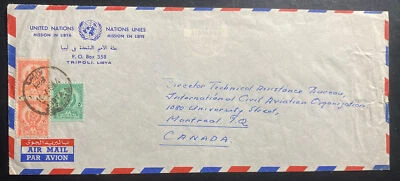 UNITED NATIONS
MISSION IN LIBYA
NATIONS UNIES
MISSION EN LIBYE
بعثة الأمم المتحدة في ليبيا
P. O. Box 358
TRIPOLI, LIBYA
Director Technical Assistance Bureau,
International Civil Aviation Organization,
1080 University Street,
Montreal, P.Q.
CANADA
بالبريد الجوي
AIR MAIL
PAR AVION